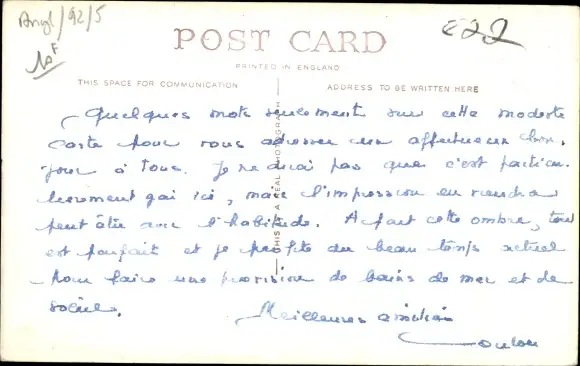 Angl/92/5
10F
£22
POST CARD
PRINTED IN ENGLAND
THIS SPACE FOR COMMUNICATION
ADDRESS TO BE WRITTEN HERE
THIS IS A REAL PHOTOGRAPH
Quelques mots seulement sur cette modeste
carte pour vous adresser un affectueux bon-
jour à tous. Je ne dirai pas que c'est particu-
lièrement gai ici, mais l'impression en viendra
peut être avec l'habitude. A part cette ombre, tout
est parfait et je profite du beau temps actuel
pour faire une provision de bains de mer et de
soleil.
Meilleures amitiés